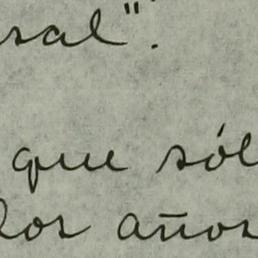 sal".
que sól
los años